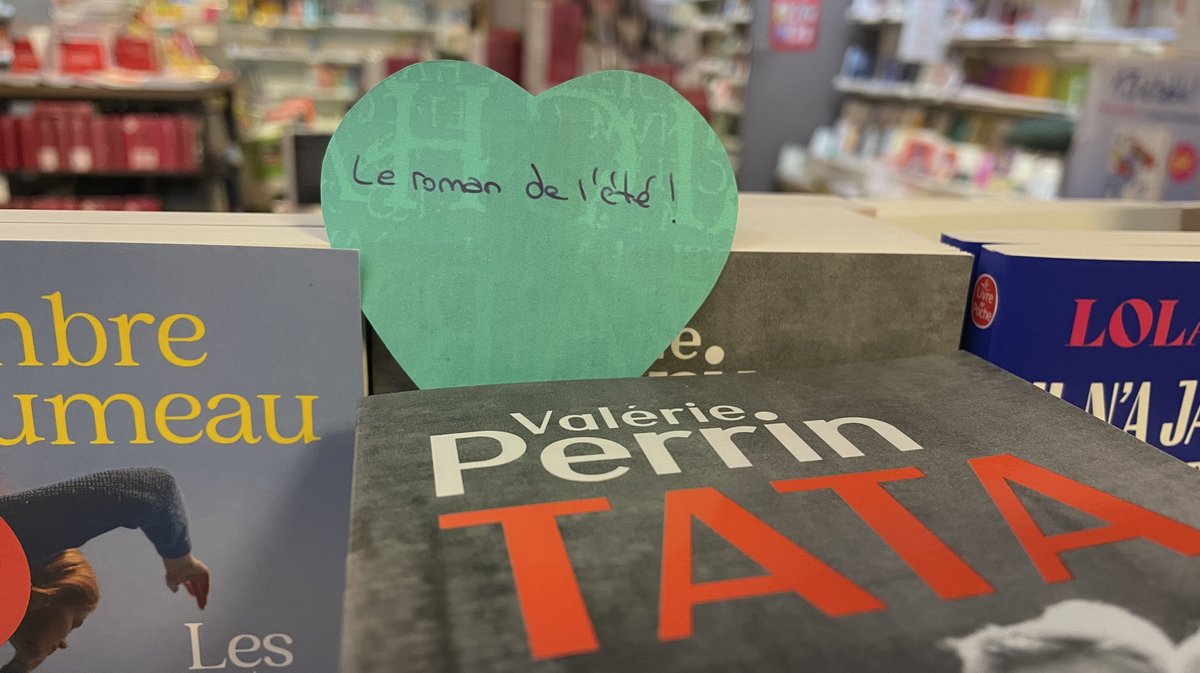 Le roman de l'été !
Valérie
Perrin
TATA
mbre
umeau
Les
Livre
de
Poche
LOLA
N'A JA